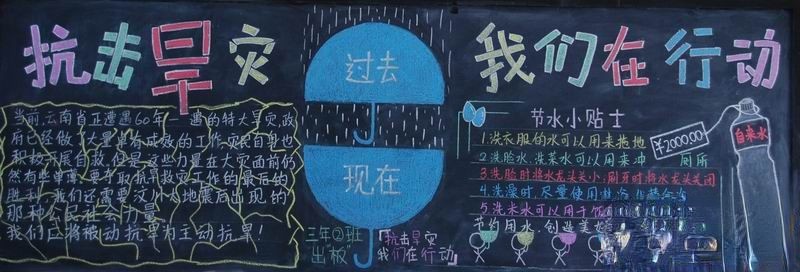 抗击旱灾
当前,云南省正遭遇60年一遇的特大旱灾,政
府已经做了大量卓有成效的工作,灾民自身也
积极开展自救,但是这些力量在大灾面前仍
然有些单薄,要夺取抗旱救灾工作的最后的
胜利,我们还需要汶川大地震后出现的
那种公民社会力量
我们应将被动抗旱为主动抗旱!
过去
现在
三年②班
出"板"
「抗击旱灾
我们在行动」
我们在行动
节水小贴士
1.洗衣服的水可以用来拖地
2.洗脸水、洗菜水可以用来冲 厕所
3.洗脸时将水龙头关小,刷牙时将水龙头关闭
4.洗澡时,尽量使用
5.洗米水可以用于饮
节约用水,创造美好
¥2000.00
自来水